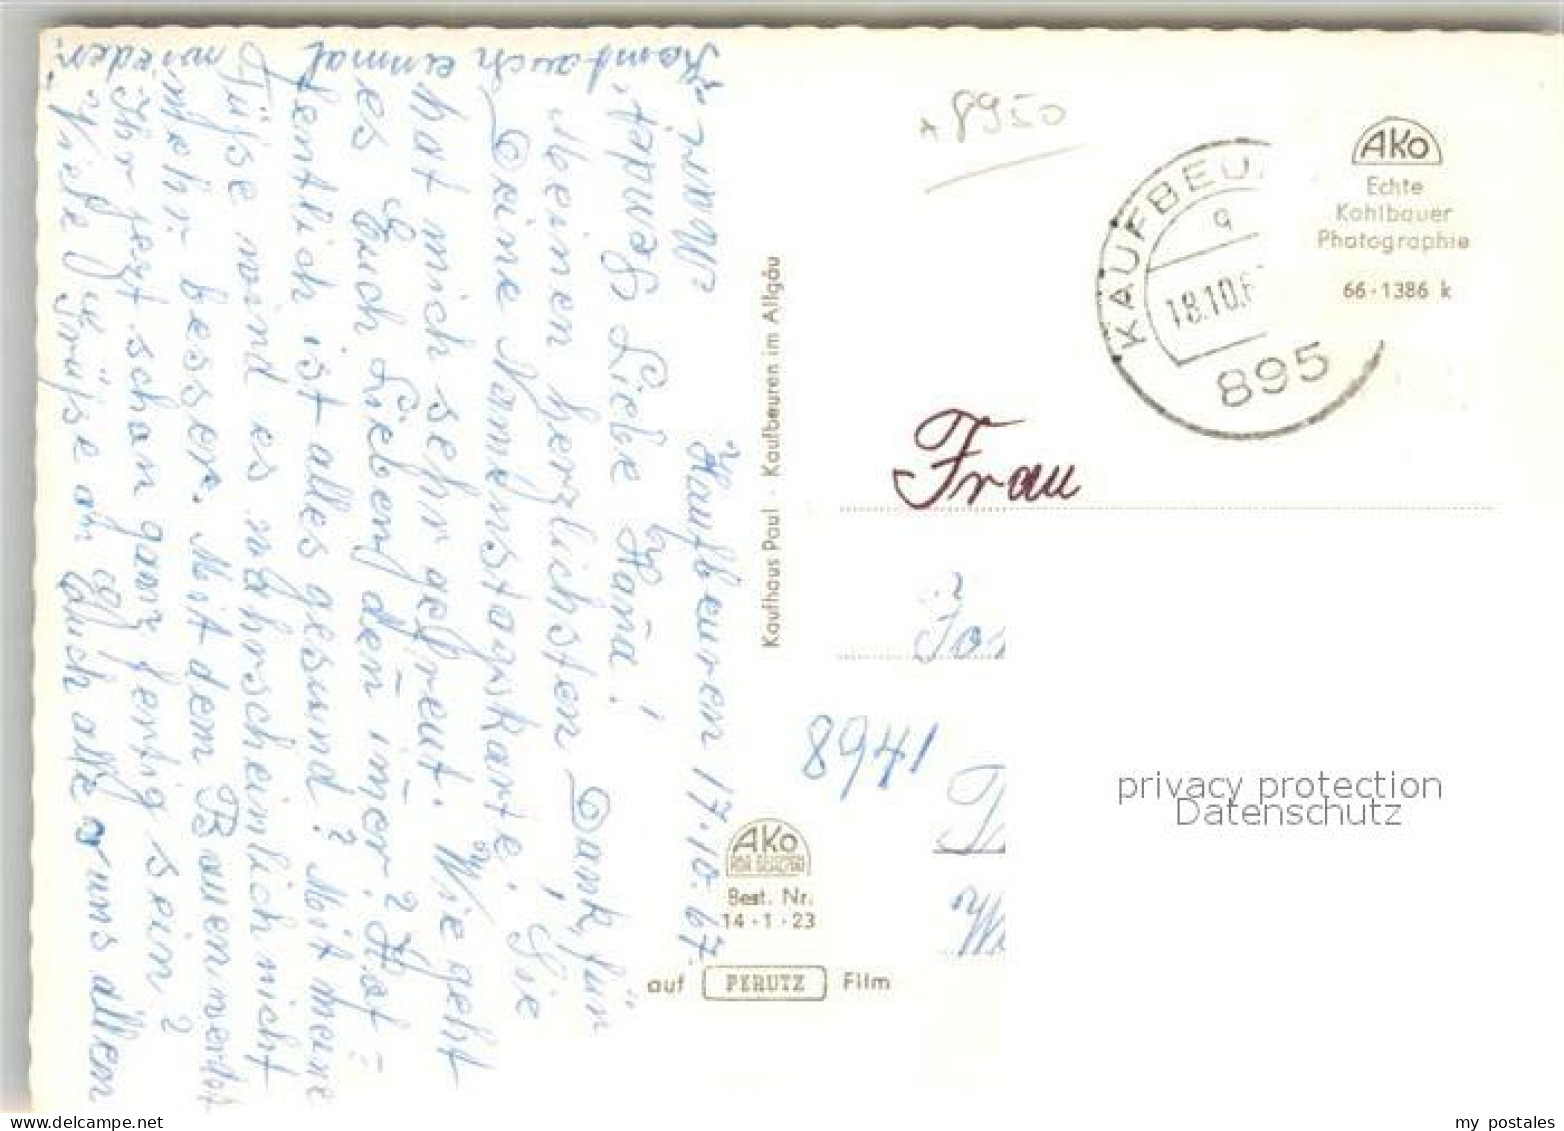 Kaufbeuren 17.10.67.
Liebe Hana!
Meinen herzlichsten Dank, für
Deine Namenstagskarte, Sie
hat mich sehr gefreut. Wie geht
es Euch Lieben den imer? Hof-
fentlich ist alles gesund? Mit meine
Füße wird es wahrscheinlich nicht
mehr besser. Mit dem
Ihr jezt schon ganz fertig sein?
Viele Grüße an Euch alle v uns allen
Komt auch einmal wieder.
Kaufhaus Paul · Kaufbeuren im Allgäu
*8950
KAUFBEU
q
18.10.6
895
AKO
Echte
Kahlbauer
Photographie
66-1386 k
Frau
8941
AKO
Best. Nr.
14-1-23
auf PERUTZ Film
privacy protection
Datenschutz
my postales